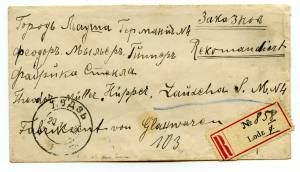 Городъ Лауша Германiя
Заказное
Феодоръ Мыльеръ. Гиппоръ
Rekomandirt
Фабрика Стекла
Theodor Müller. Hüpper. Lauscha S. M. N4
Fabrikant von Glaswaren
103
ЛОДЗЬ
R
№ 859
Lodz